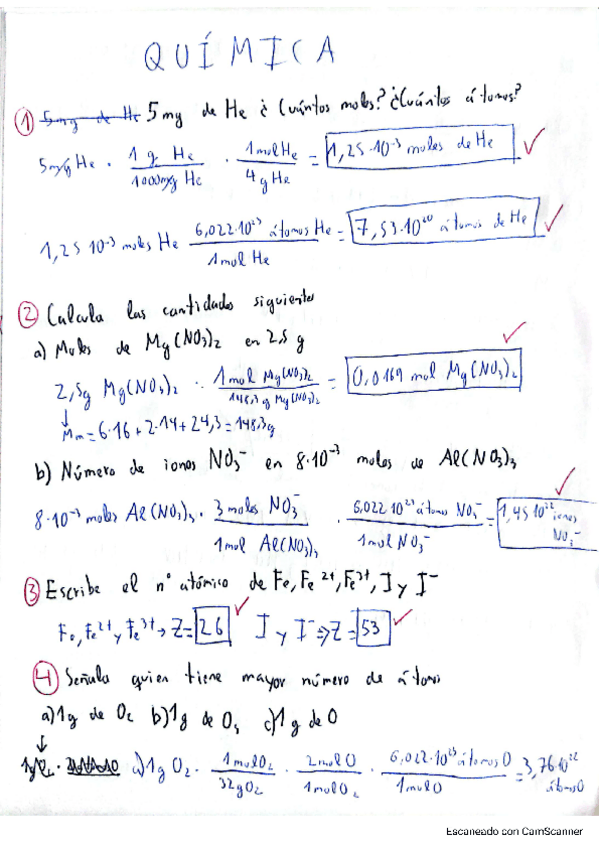 QUÍMICA
① 5mg de He 5mg de He ¿Cuántos moles? ¿Cuántos átomos?
5mg He · 1 g He / 1000mg He · 1 mol He / 4 g He = 1,25·10⁻³ moles de He ✓
1,25 10⁻³ moles He 6,022·10²³ átomos He / 1 mol He = 7,53·10²⁰ átomos de He ✓
② Calcula las cantidades siguientes
a) Moles de Mg(NO₃)₂ en 2,5 g
2,5g Mg(NO₃)₂ · 1 mol Mg(NO₃)₂ / 148,3 g Mg(NO₃)₂ = 0,0169 mol Mg(NO₃)₂ ✓
↓
Mm = 6·16 + 2·14 + 24,3 = 148,3g
b) Número de iones NO₃⁻ en 8·10⁻³ moles de Al(NO₃)₃
8·10⁻³ moles Al(NO₃)₃ · 3 moles NO₃⁻ / 1 mol Al(NO₃)₃ · 6,022·10²³ átomos NO₃⁻ / 1 mol NO₃⁻ = 1,45·10²² iones NO₃⁻ ✓
③ Escribe el nº atómico de Fe, Fe²⁺, Fe³⁺, I y I⁻
Fe, Fe²⁺ y Fe³⁺ → Z = 26 ✓ I y I⁻ ⇒ Z = 53 ✓
④ Señala quien tiene mayor número de átomos
a) 1g de O₂ b) 1g de O₃ c) 1g de O
↓
a) 1g O₂ · 1 mol O₂ / 32g O₂ · 2 mol O / 1 mol O₂ · 6,022·10²³ átomos O / 1 mol O = 3,76·10²² átomos O
Escaneado con CamScanner